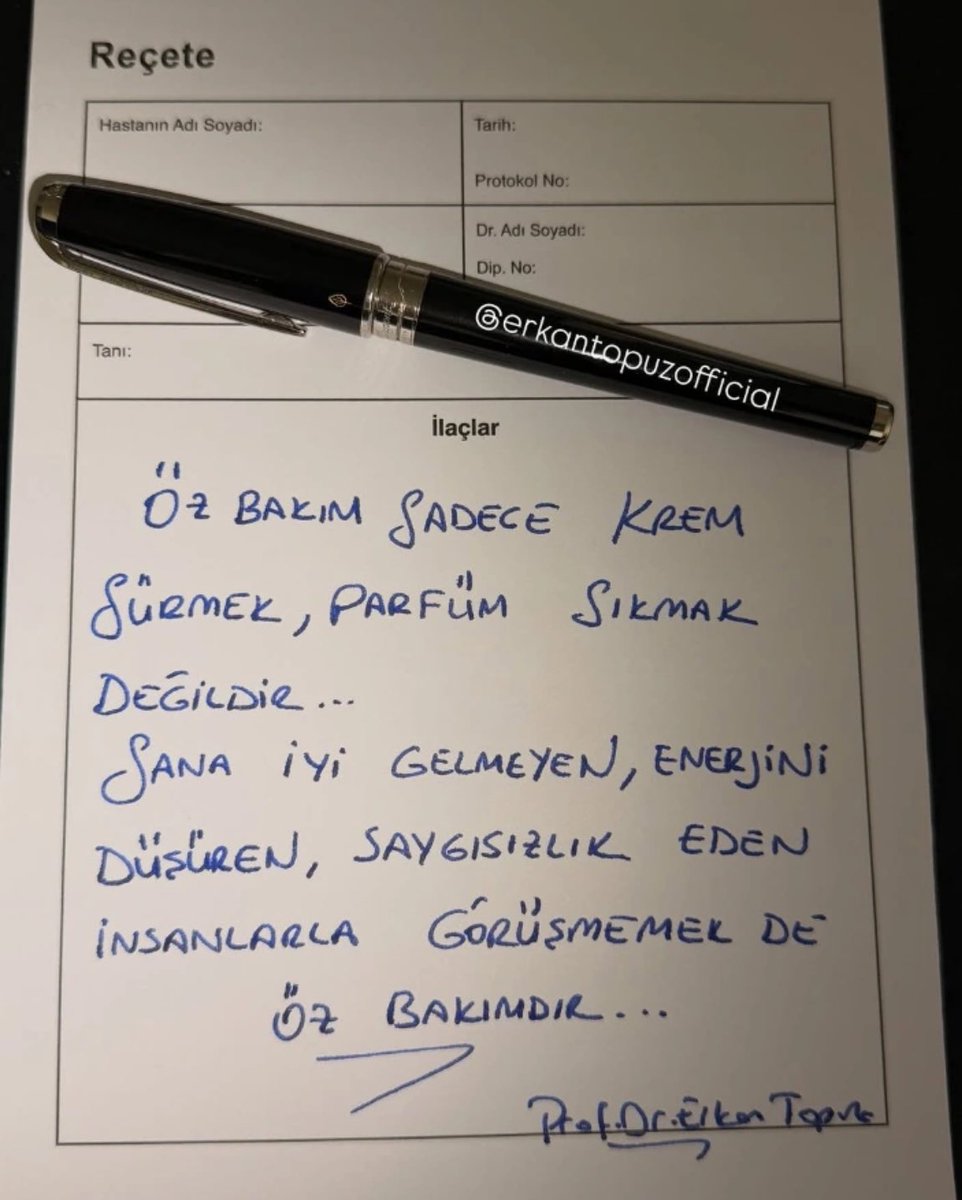 Reçete
Hastanın Adı Soyadı:
Tarih:
Protokol No:
Dr. Adı Soyadı:
Dip. No:
@erkantopuzofficial
Tanı:
İlaçlar
ÖZ BAKIM SADECE KREM
SÜRMEK, PARFÜM SIKMAK
DEĞİLDİR...
SANA İYİ GELMEYEN, ENERJİNİ
DÜŞÜREN, SAYGISIZLIK EDEN
İNSANLARLA GÖRÜŞMEMEK DE
ÖZ BAKIMDIR...
Prof.Dr.Erkan Topuz